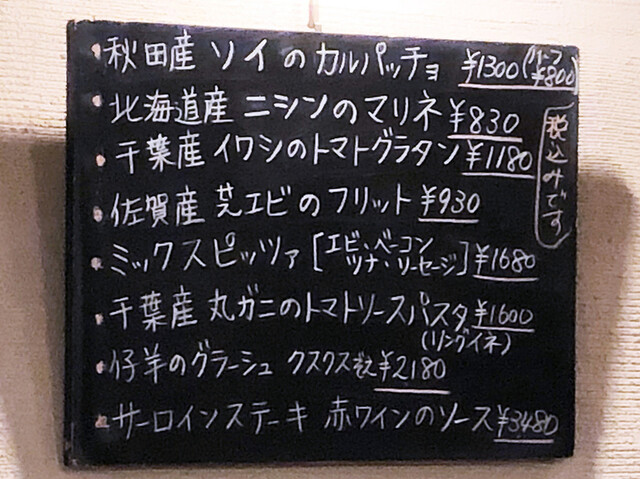 秋田産 ソイのカルパッチョ ¥1300(ハーフ ¥800)
北海道産 ニシンのマリネ ¥830
千葉産 イワシのトマトグラタン ¥1180
税込みです
佐賀産 芝エビのフリット ¥930
ミックスピッツァ [エビ・ベーコン ツナ・ソーセージ] ¥1680
千葉産 丸ガニのトマトソースパスタ ¥1600
(リングイネ)
仔羊のグラーシュ クスクス添え ¥2180
サーロインステーキ 赤ワインのソース ¥3480